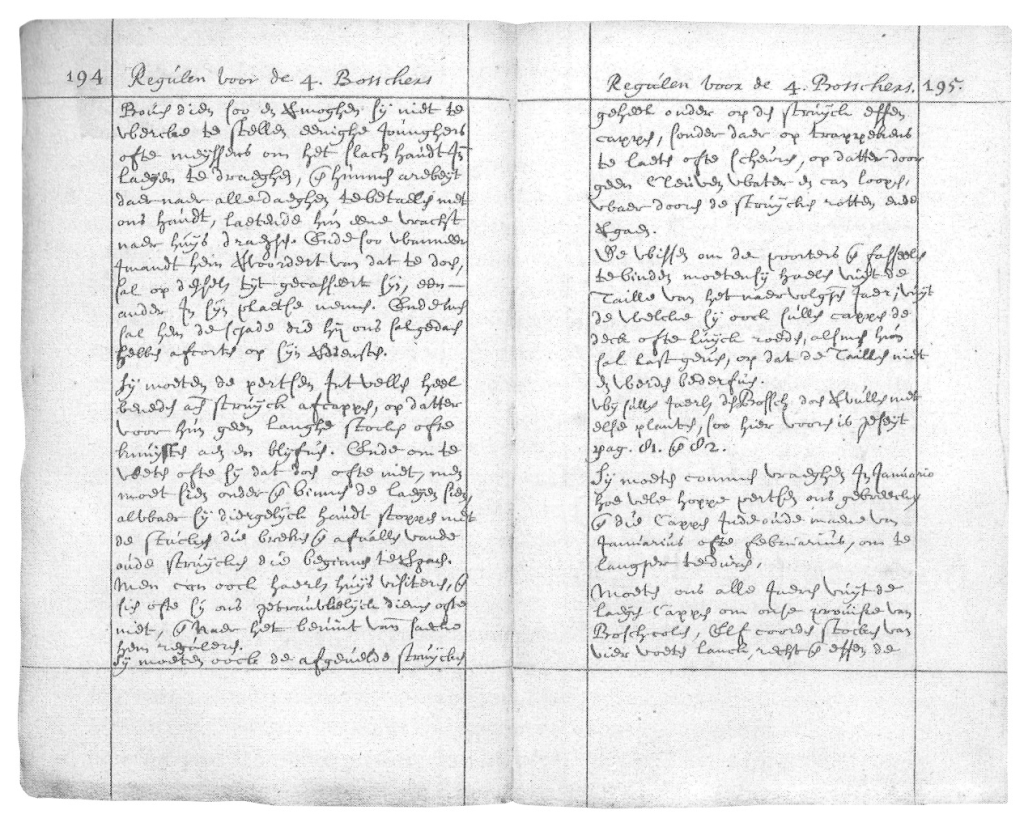 194 Regulen voor de 4. Bosschers
Boven dien soo en vermoghen sy niet te
wercke te stellen eenighe Jonghers
ofte meyssens om het slach haudt In
laegen te draeghen, & hunnen arebeyt
daer naer alle daeghen te betaellen met
ons haudt, laetende hun eene vracht
naer huys draeghen. Ende soo wanneer
Jmandt hem vervoordert van dat te doen,
sal op deselven tyt gecasseert syn, een
ander In syn plaetse nemen. Ende men
sal hem de schade die hy ons sal gedaen
hebben afcorten op syn verdienste.
Sy moeten de pertsen Int vellen heel
beneden aen struyck afcappen, op datter
voor hun geen langhe stocken ofte
aen en blyfven. Ende om te
weten ofte sy dat doen ofte niet, men
moet sien onder & binnen de laegen sien,
alwaer sy diergelyck haudt stoppen met
de stucken die breken & afvallen vande
oude struycken die beginnen te vergaen.
Men can oock haerl. huys visiteren, &
sien ofte sy ons getrauwelyck dienen ofte
niet, & Naer het bevint van saecke
hem regulere.
Sy moeten oock de afgevelde struycken
Regulen voor de 4. Bosschers. 195.
geheel onder op den struyck effen
cappen, sonder daer op trappekens
te laeten ofte scheuren, op datter door
geen Cleuven water en can loopen,
waer door de struycken rotten ende
vergaen.
De wissen om de poorters & fasseelen
te binden moeten sy haelen uuyt de
Taille van het naer volgen Jaer, uuyt
de welcke sy oock sullen cappen de
deck ofte luyck roeden, alsmen hun
sal last geven, op dat de Taillen niet
en werden bedorfven.
Wy sullen Jaerl. den Bossch doen vervullen met
else planten, soo hier vooren is geseyt
pag. 81. & 82.
Sy moeten commen vraeghen In Januario
hoe vele hoppe pertsen ons gebreecken
& die Cappen Inde oude maene van
Januarius ofte februarius, om te
langher te duren.
Moeten ons alle Jaeren uuyt de
laegen Cappen om onse provisie van
Boschcolen, Elf coorden stocken van
vier voeten lanck, recht & effen de